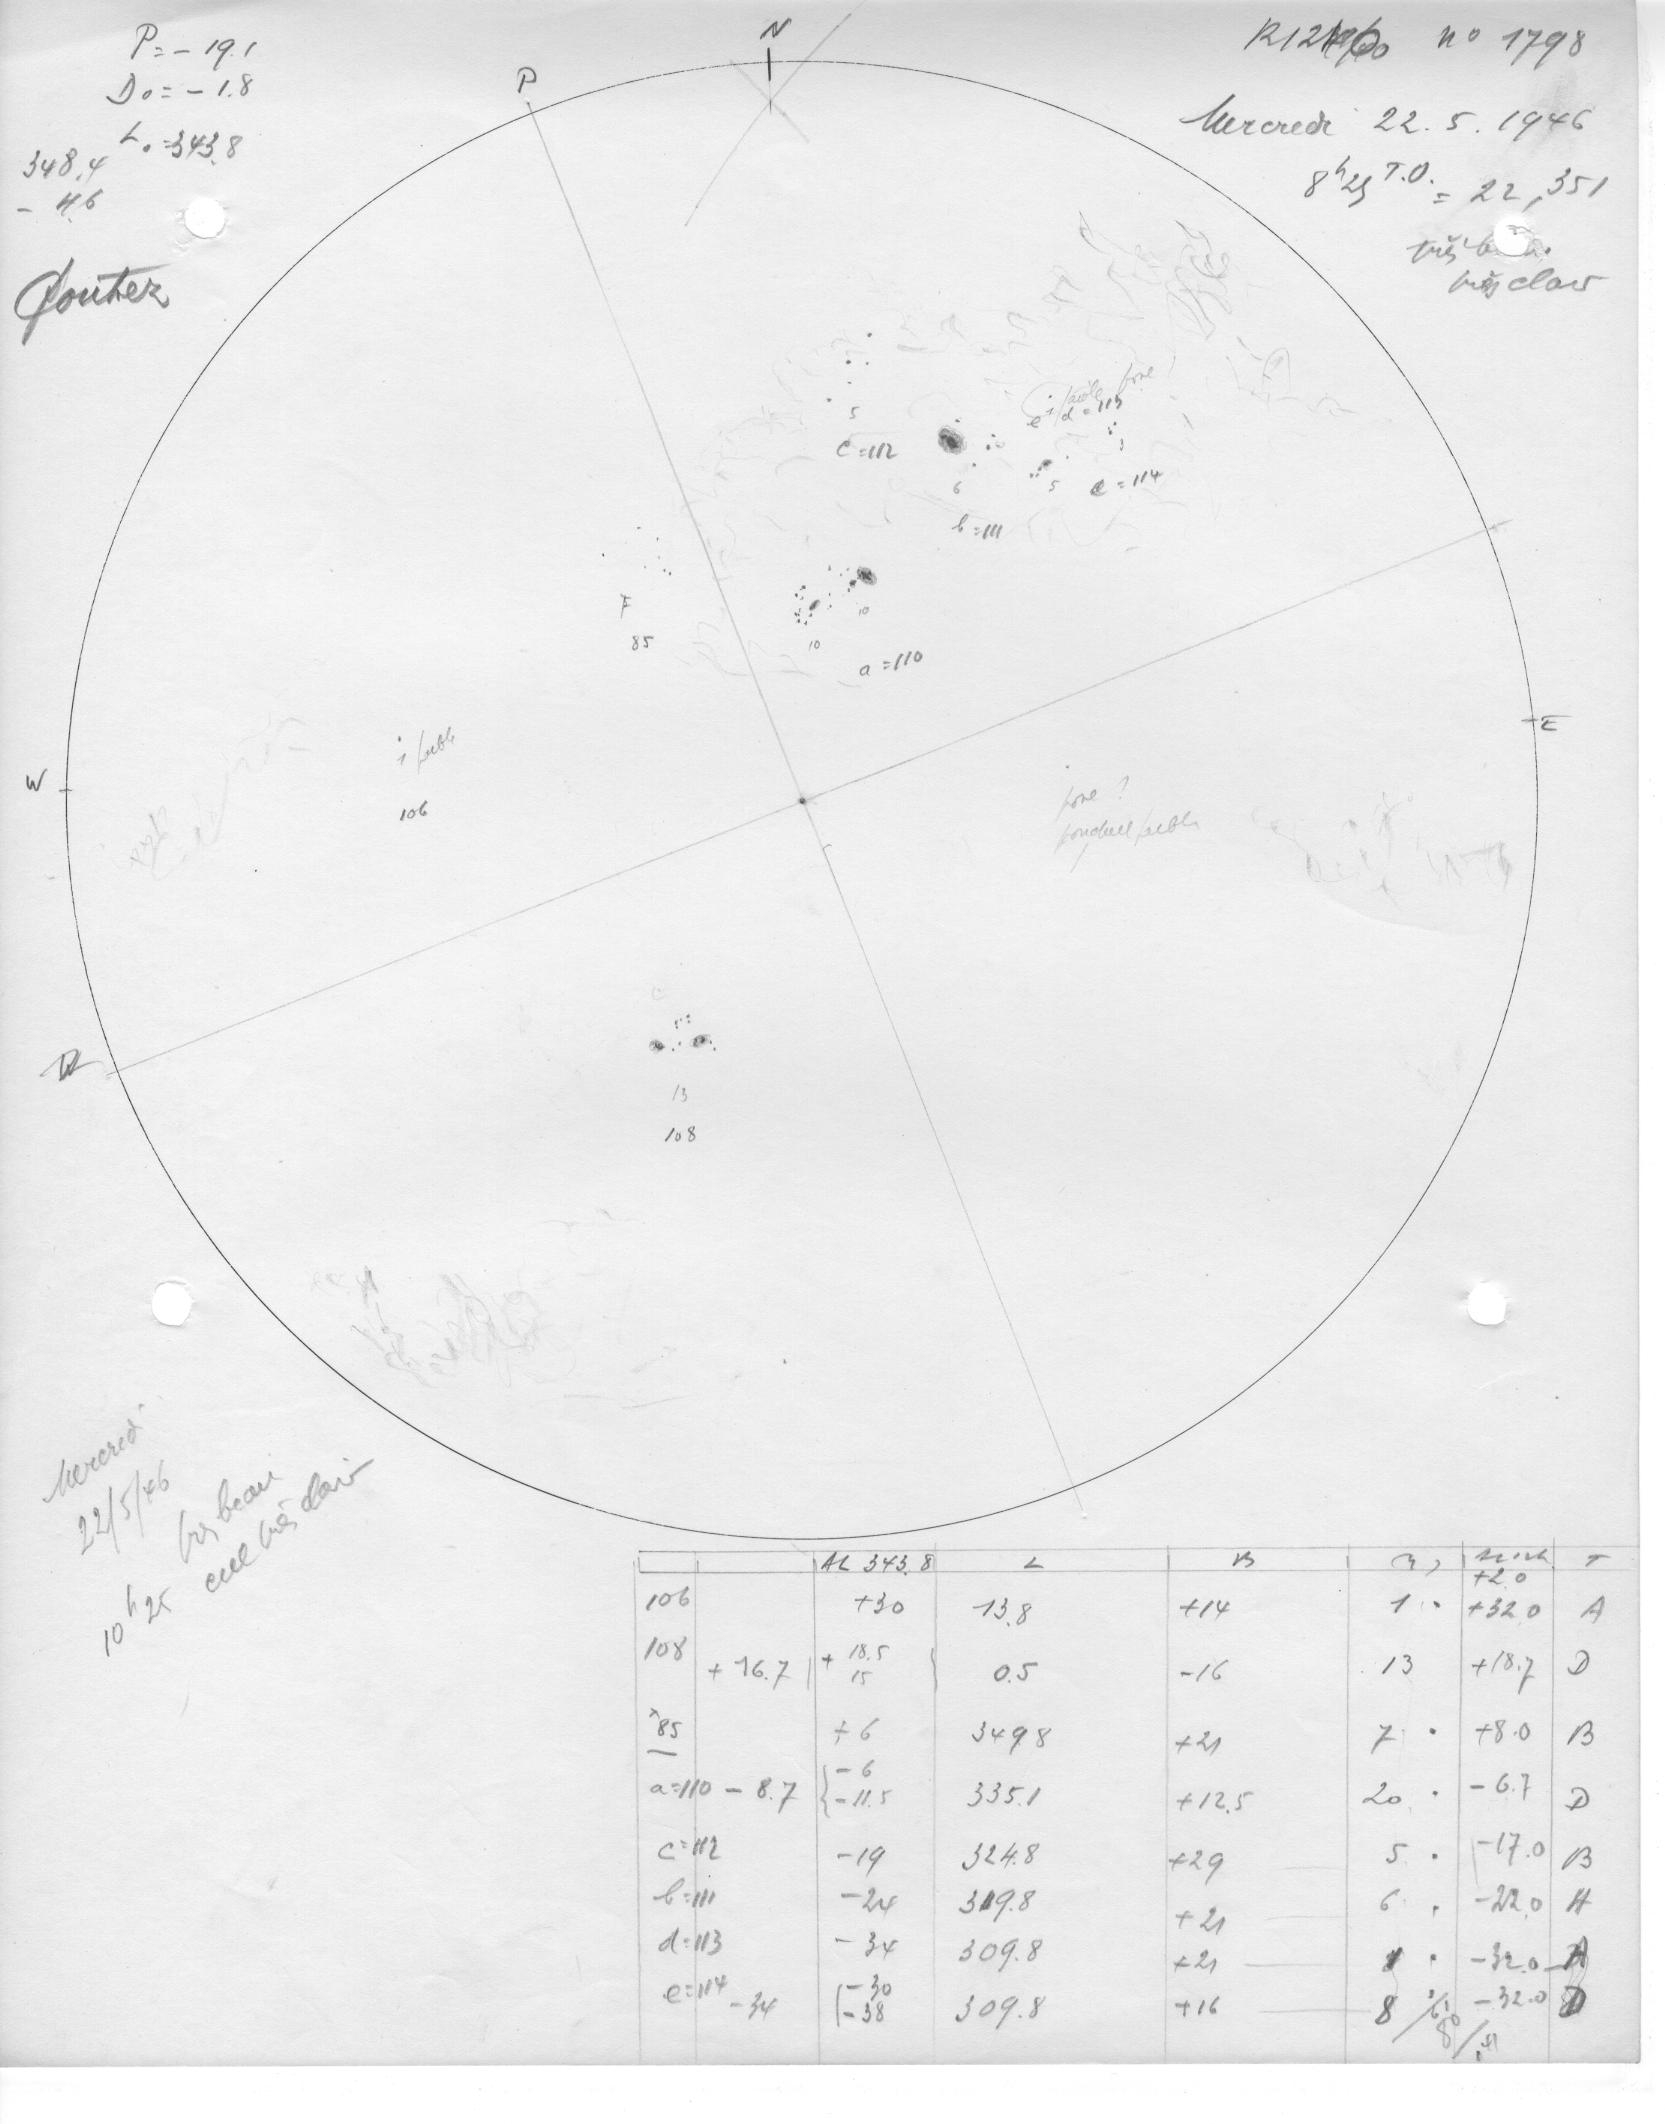 P = - 19.1
D₀ = - 1.8
L₀ = 343.8
348.4
- 4.6
N
P
n° 1798
Mercredi 22. 5. 1946
8h25 T.U. = 22,351
très
très clair
5
c = 112
1 faible pore
e d = 113
3
6
5
e = 114
b = 111
7
85
10
10
a = 110
W
E
1 faible
106
pore ?
faible
13
108
Mercredi
22/5/46
10h25
très beau
ciel très clair
ΔL 343.8 L B T
+2.0
106 +30 13.8 +14 1 · +32.0 A
108 + 16.7 + 18.5 15 0.5 -16 13 +18.7 D
85 + 6 349.8 +21 7 · +8.0 B
a=110 - 8.7 - 6 - 11.5 335.1 +12.5 20 · - 6.7 D
c=112 -19 324.8 +29 5 · -17.0 B
b=111 -24 319.8 +21 6 · -22.0 H
d=113 - 34 309.8 +21 1 · -32.0 A
e=114 -34 -30 -38 309.8 +16 8 -32.0 D